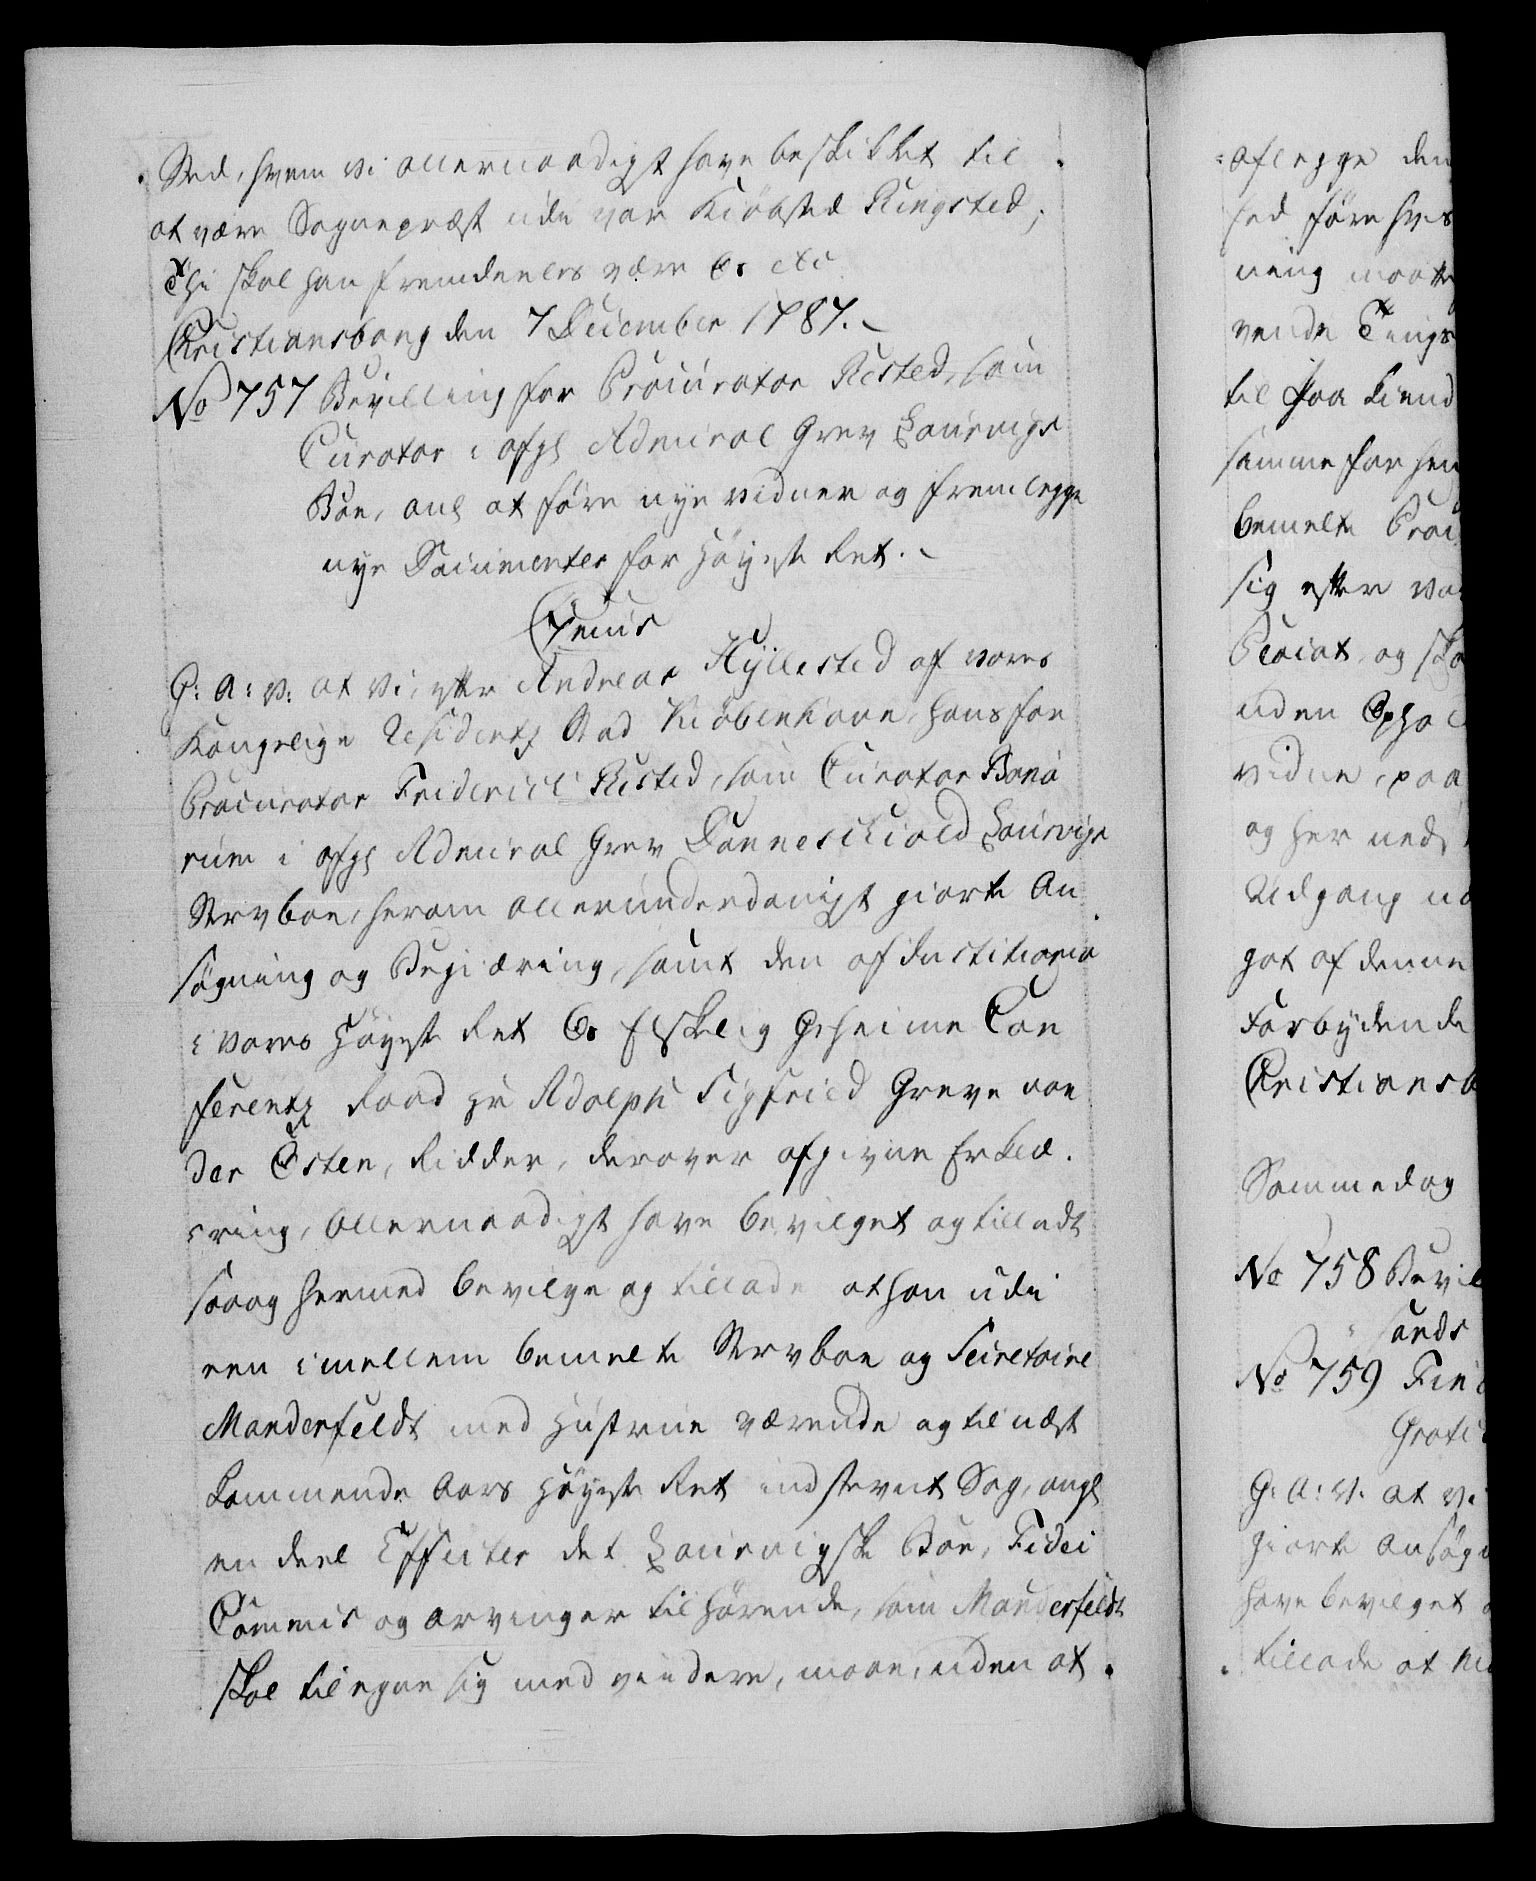 Sted, hvem vi allernaadigst have beskikket til
at være Sognepræst udi vor Kiöbsted Ringsted,
Thi skal han fremdeeles være &c etc
Christiansborg den 7 December 1787.
No 757 Bevilling for Procurator Risted, som
Curator i afgl Admiral Grev Laurvigs
Boe, anl at före nye vidner og fremlegge
nye Documenter for Höyeste Ret.
Cujus
G: A: V: at vi, efter Andreas Hyllested af vores
Kongelige Residentz Stad Kiöbenhavn, hans for
Procurator Friderich Risted, som Curator Bono
rum i afgl Admiral Grev Danneschiold Laurvigs
Stervboe, herom allerunderdanigst giorte An
søgning og Begiæring, samt den af Justitiario
i vores Höyeste Ret Os Elskelig Geheime Con
ferentz Raad Hr Adolph Sigfried Greve von
der Osten, Ridder, derover afgivne Erklæ
ring, Allernaadigst have bevilget og tilladt
saa og hermed bevilge og tillade at han udi
een imellem bemelte Stervboe og Secretaire
Manderfeldt med Hustrue værende og til næst
kommende Aars Höyeste Ret indstevnt Sag, angl
en deel Effecter det Laurvigske Boe, Fidei
Commis og Arvinger tilhörende, som Manderfeldt
skal tilegne sig med videre, maae, uden at
aflegge den
fore hvis
ning maatte
vende Tings
til paa kiend
samme for hen
bemelte Proc
sig efter vor
Placat, og ska
uden Ophol
vidne, paa
og her ned
Udgang no
got af denne
Forbydende
Christiansb
Sammedag
No 758 Bevil
sands
No 759 Fin
Grati
G: A: V: at vi
giorte Ansøgn
have bevilget
tillade at